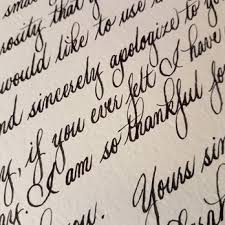 small
rosity that y
would like to use
nd sincerely apologize to yo
y, if you ever felt I have
I am so thankful fo
Yours sin